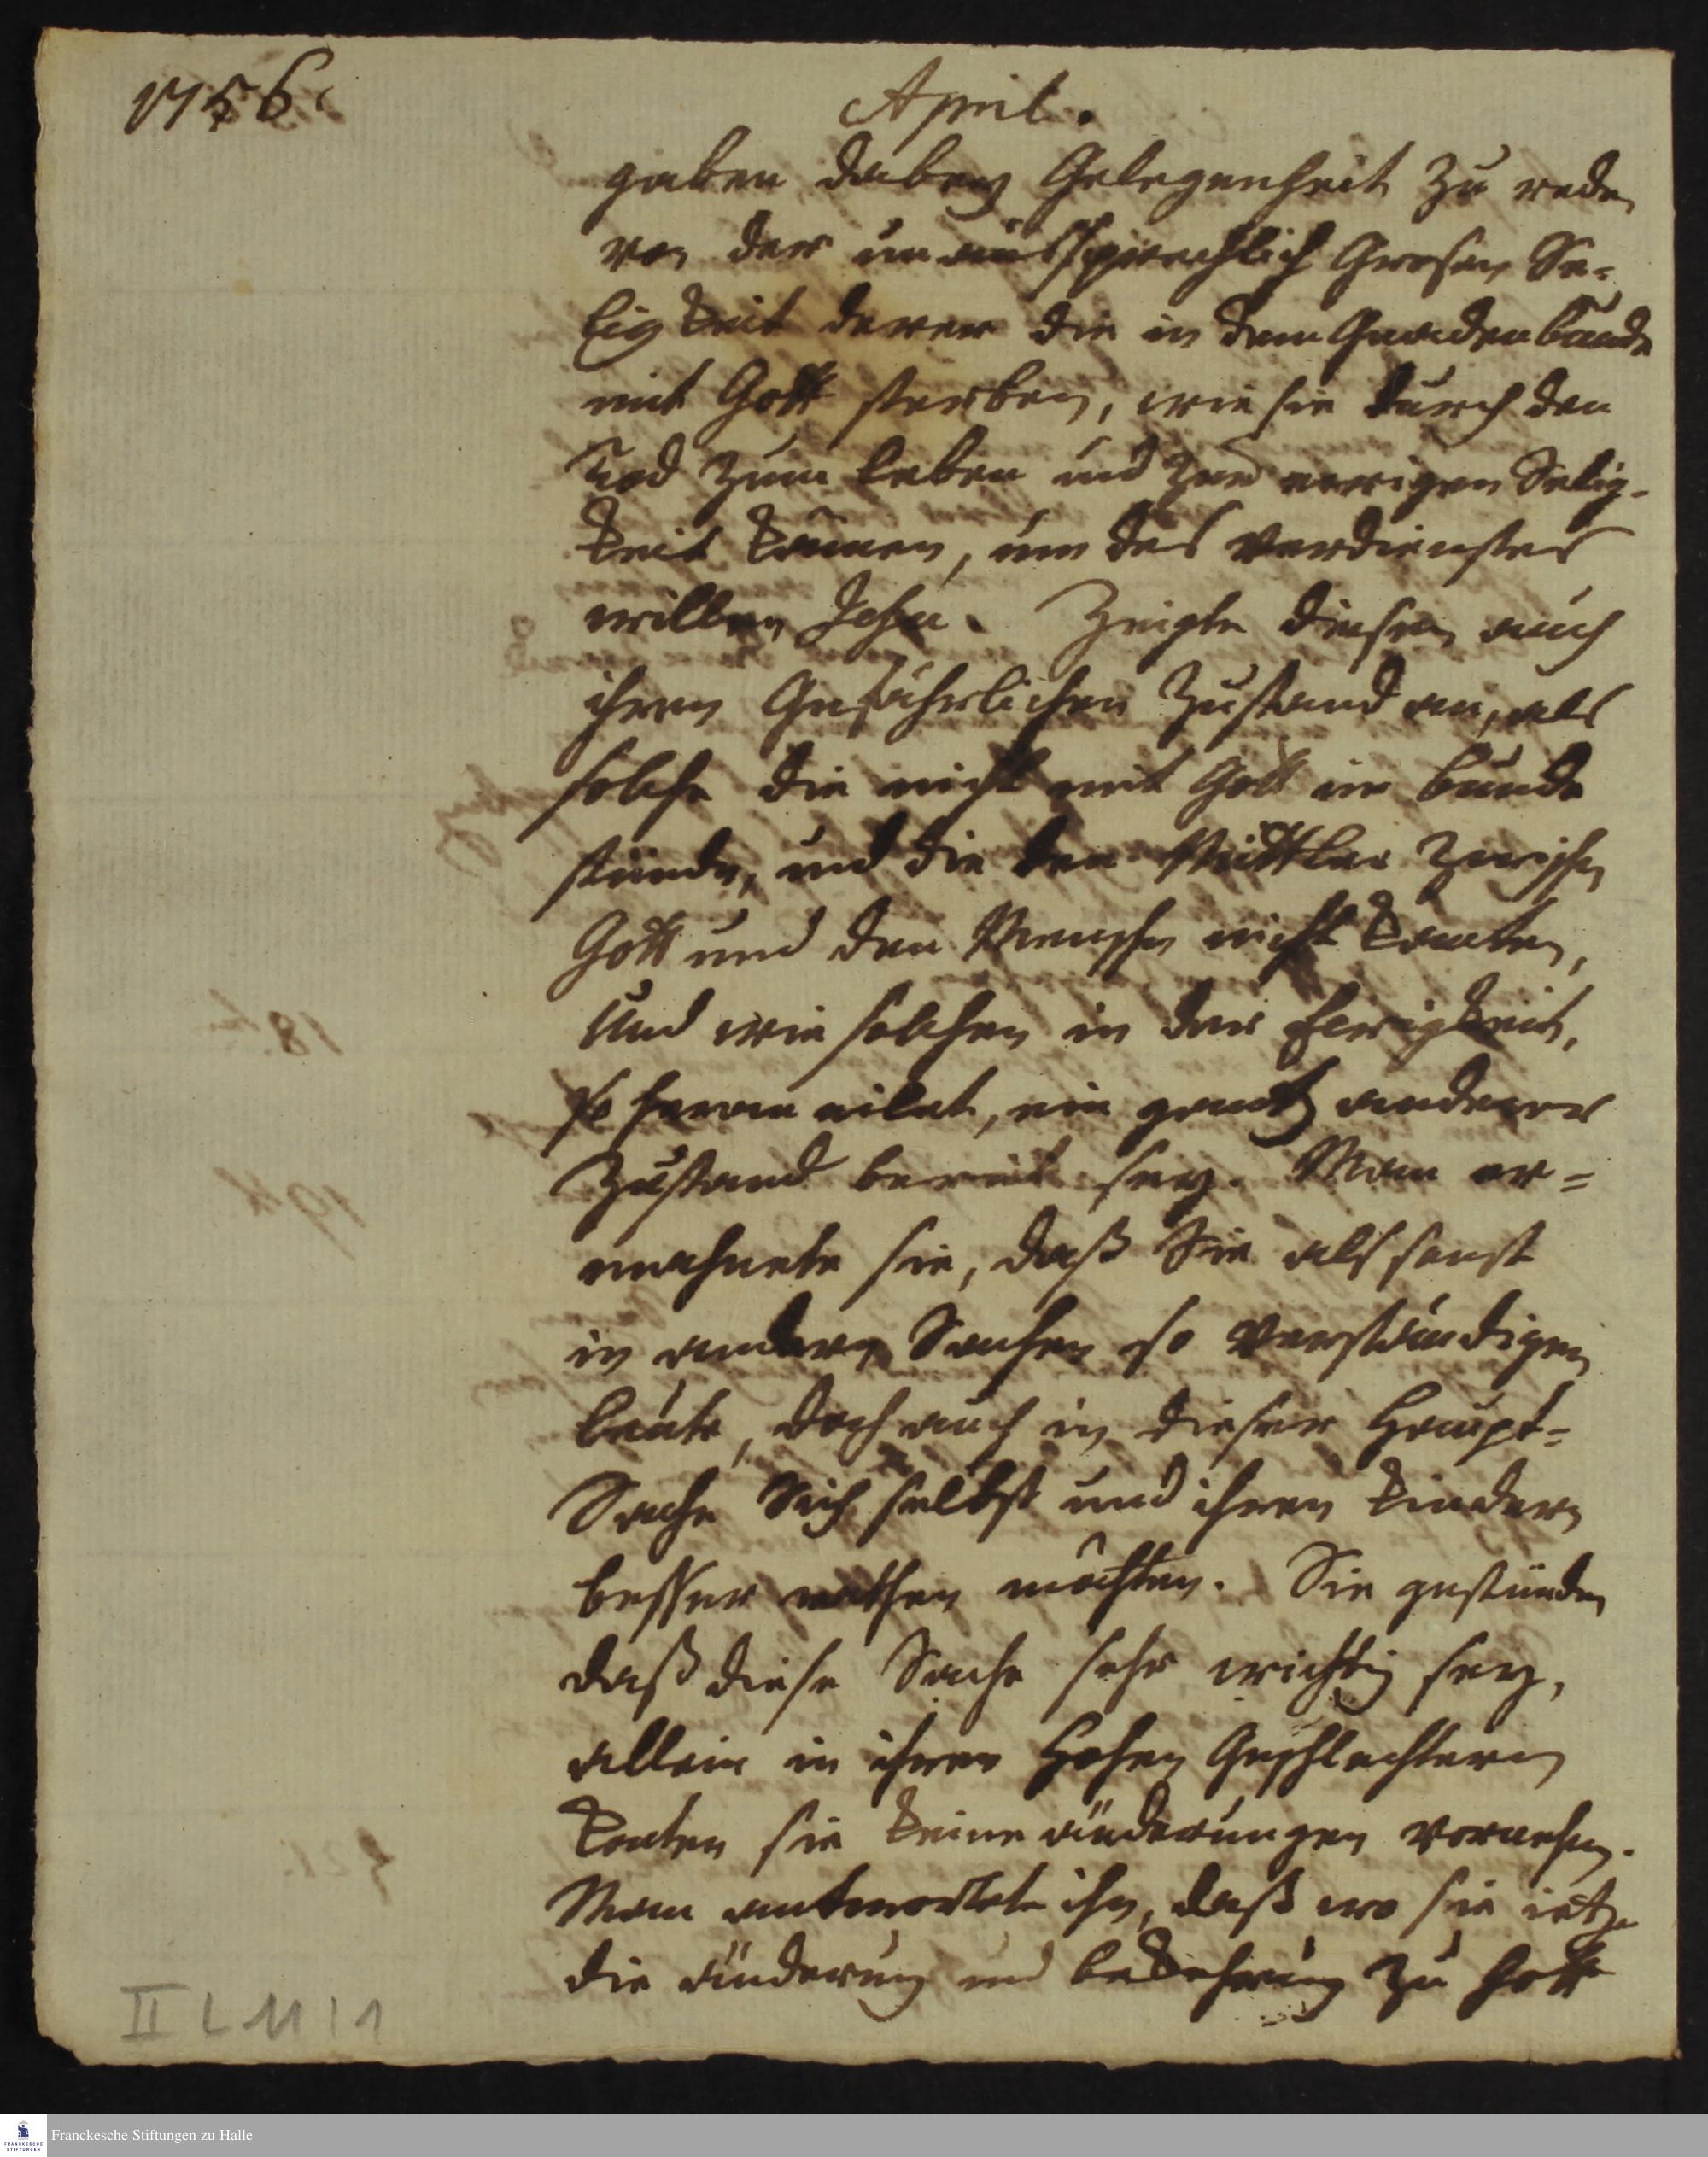 1756.
April.
gaben dabey Gelegenheit zu reden
von der unaussprechlich Grosen Se=
ligkeit derer die in dem Gnadenbunde
mit Gott sterben, wie sie durch den
Tod zum leben und zur ewigen Selig-
keit kämen, um des Verdienstes
willen Jesu. Zeigte diesen auch
ihren Gefährlichen Zustand an, als
solche die nicht mit Gott im bunde
stünden, und die den Mittler zwischen
Gott und den Menschen nicht kenten,
Und wie solchen in der Ewigkeit,
so heran eilet, ein gantz anderer
Zustand bereit sey. Man er=
mahnete sie, daß Sie als sonst
in andern Sachen so verständigen
leute, doch auch in dieser Haupt=
Sache Sich selbst und ihren Kindern
besser rathen möchten. Sie gestünden
daß diese Sache sehr wichtig sey,
allein in ihren Hohen Geschlechtern
konten sie keine änderungen vornehmen.
Man antwortete ihnen, daß wo sie ietzo
die änderung und bekehrung zu Gott
II L 11 | 1
Franckesche Stiftungen zu Halle
FRANCKESCHE
STIFTUNGEN